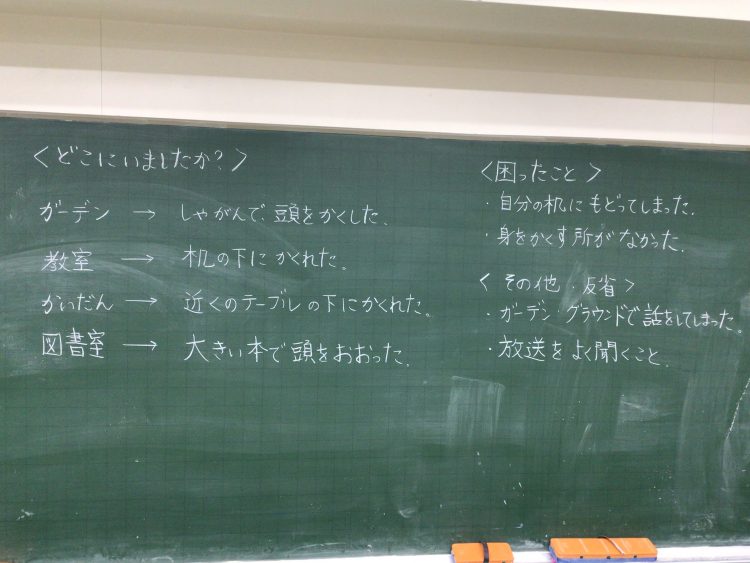 〈どこにいましたか?〉
ガーデン → しゃがんで頭をかくした.
教室 → 机の下にかくれた。
かいだん → 近くのテーブルの下にかくれた。
図書室 → 大きい本で頭をおおった.
〈困ったこと〉
・自分の机にもどってしまった.
・身をかくす所がなかった.
〈その他・反省〉
・ガーデン・グラウンドで話をしてしまった。
・放送をよく聞くこと.